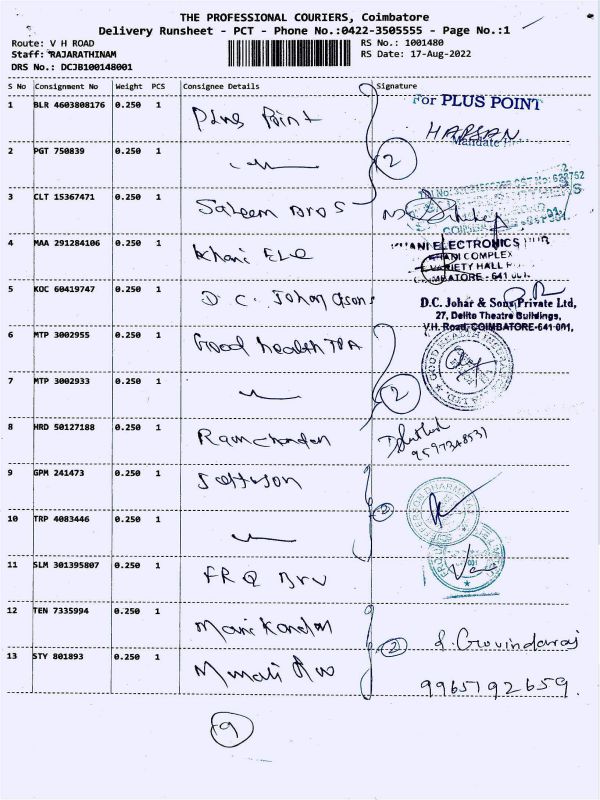 THE PROFESSIONAL COURIERS, Coimbatore
Delivery Runsheet - PCT - Phone No.:0422-3505555 - Page No.:1
Route: V H ROAD RS No.: 1001480
Staff: RAJARATHINAM RS Date: 17-Aug-2022
DRS No.: DCJB100148001
S No Consignment No Weight PCS Consignee Details Signature
1 BLR 4603808176 0.250 1 Plus Point For PLUS POINT
HARSAN
2 PGT 750839 0.250 1 2
3 CLT 15367471 0.250 1 Saleem Bros
4 MAA 291284106 0.250 1 Khani Ele KHANI ELECTRONICS
KHANI COMPLEX
VARIETY HALL
COIMBATORE - 641 001.
5 KOC 60419747 0.250 1 D. C. Johar & Sons D.C. Johar & Sons Private Ltd,
27, Delite Theatre Buildings,
V.H. Road, COIMBATORE-641 001,
6 MTP 3002955 0.250 1 Good health TPA
7 MTP 3002933 0.250 1 2
8 HRD 50127188 0.250 1 Ramchandan
9597348531
9 GPM 241473 0.250 1 Jefferson
10 TRP 4083446 0.250 1 2
11 SLM 301395807 0.250 1
12 TEN 7335994 0.250 1 Mani Kandan 2 S. Govindaraj
13 STY 801893 0.250 1 9965792659.
9